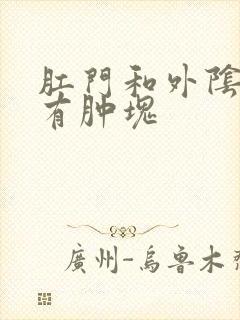 肛門和外陰
有肿塊
廣州-烏魯木